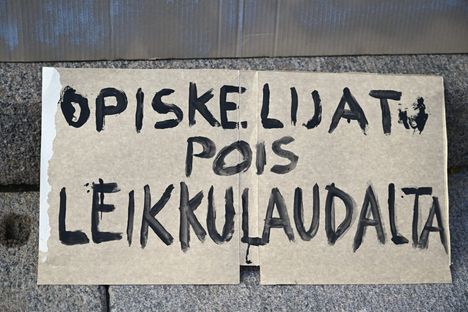 OPISKELIJAT
POIS
LEIKKULAUDALTA